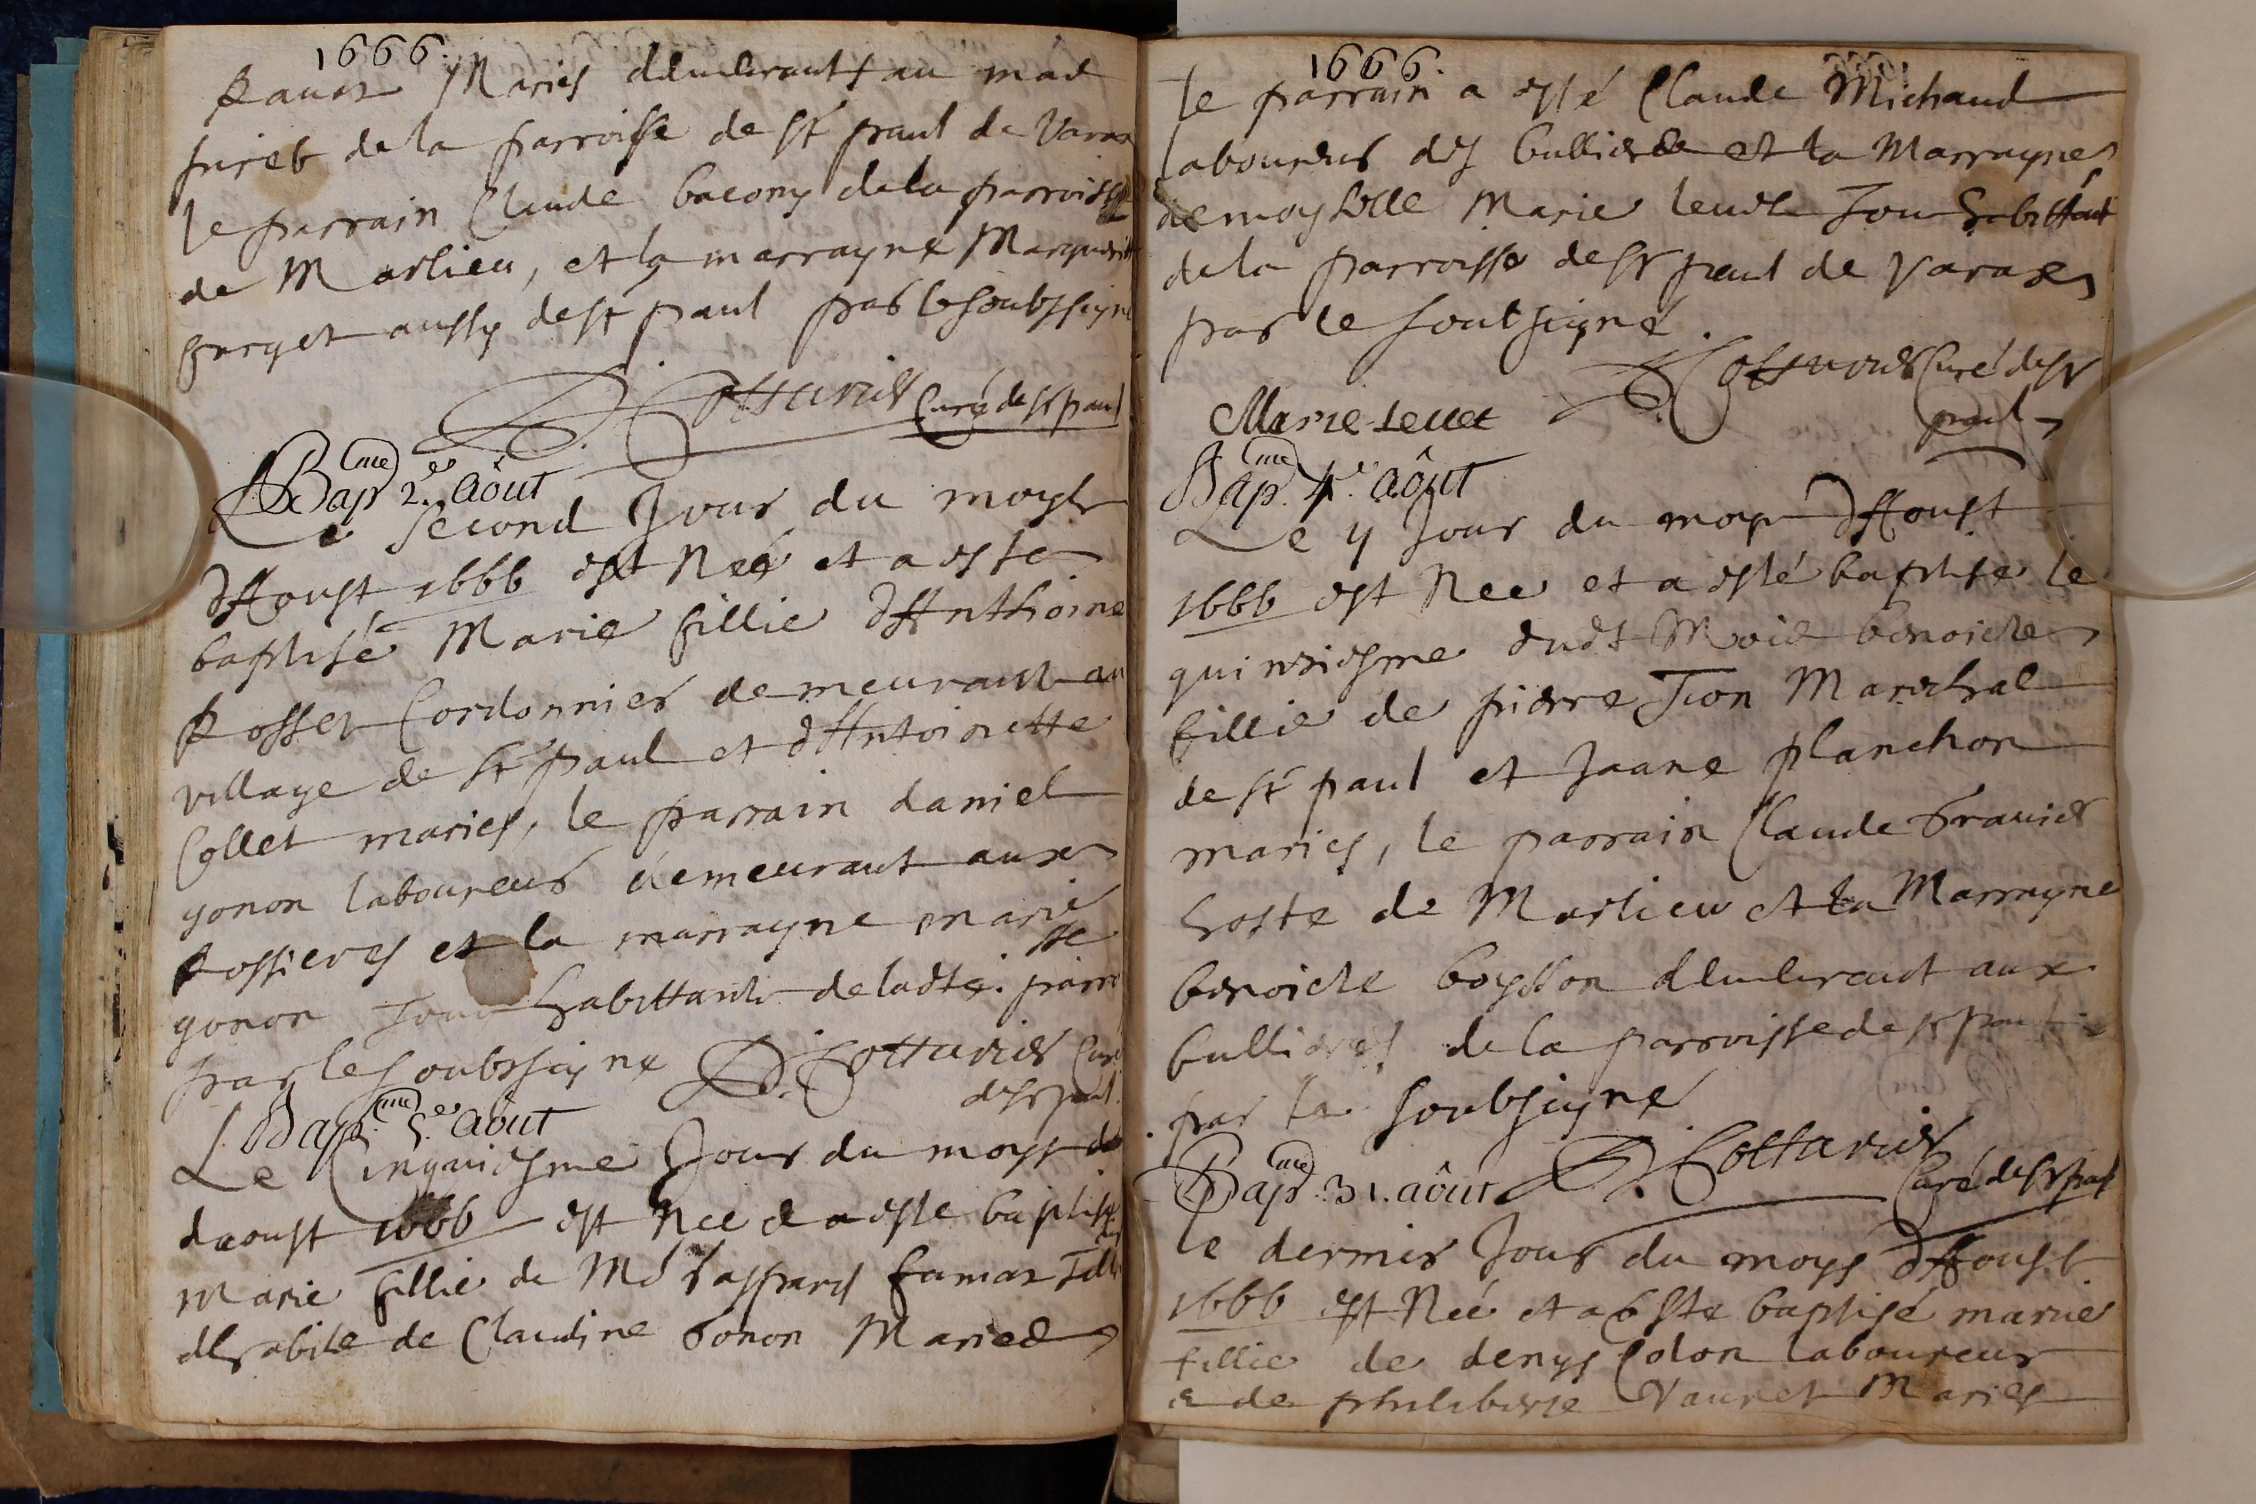 1666.
Rauat Maries demeurants au mas
de la parroisse de St paul de Varax
le parrain Claude bacony de la parroisse
de Marlieu, et la marrayne Marguerite
aussy de St paul par le soubssigné
Cottarier Curé de St paul
Bap.me 2.e Aôut
Le second Jour du moys
dAoust 1666 est Neé et a esté
baptisé Marie fillie dAnthoine
Rosset Cordonnier demeurant au
village de St paul et dAntoinette
Collet maries, le parrain daniel
gonon laboureur demeurant aux
Rossieres et la marrayne marie
gonon tous habittants de ladte. parroisse
par le soubssigne Cottarier Curé
de St paul.
Bap.me 5.e Aôut
Le Cinquiesme Jour du moys de
daoust 1666 est Nee & a este baptisé
Marie fillie de Me Gaspard
de Claudine Gonon Mariés
1666.
le parrain a esté Claude Michaud
laboureur des bullieres et la Marrayne
demoyselle Marie leuet tous habittant
de la parroisse de St paul de Varax
par le soubsigné.
Cottarier Curé de St
paul
Marie Leuet
Bap.me 4.e Aôut
Le 4 Jour du moys dAoust
1666 est Nee et a esté baptise le
quinziesme dudt Mois benoicte
fillie de pierre Tion Mareschal
de St paul et Jeane planchon
maries, le parrain Claude Grauier
hoste de Marlieu et la Marrayne
benoicte boysson demeurant aux
bullieres de la parroisse de St paul
par le soubsigné
Cottarier
Curé de St paul
Bap.me 31. aôut
le dernier Jour du moys dAoust
1666 est Neé et a este baptisé marie
fillie de denys Colon laboureur
& de philiberte Vauret Maries